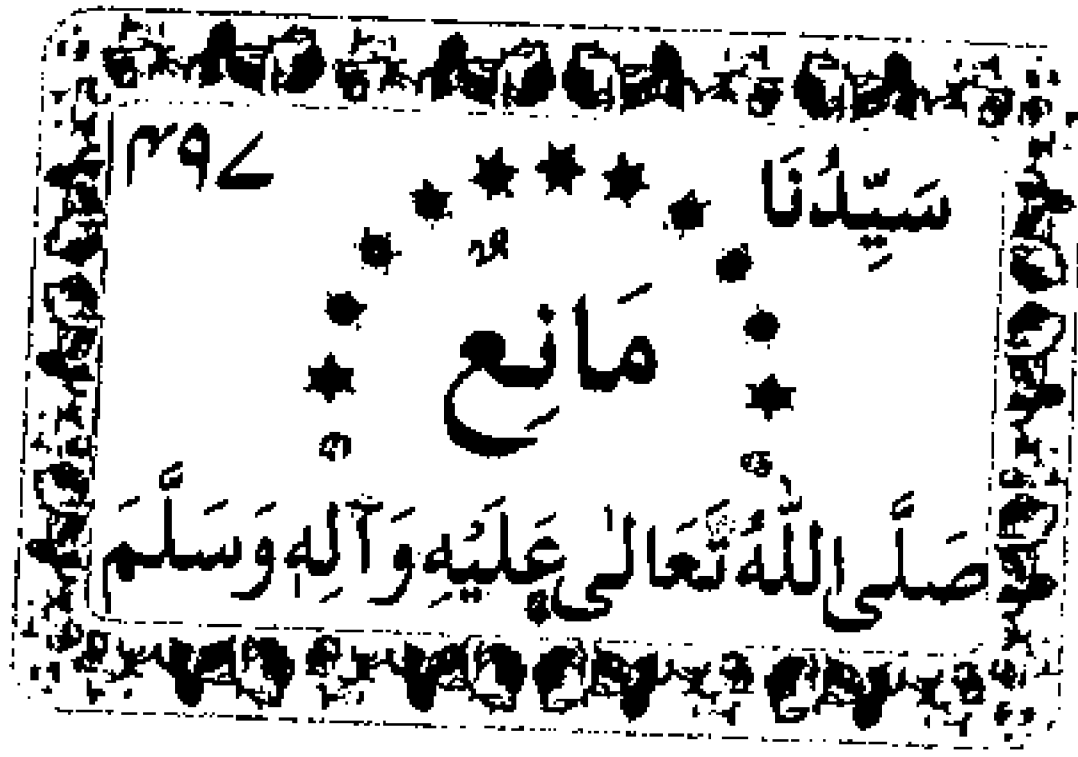 سَيِّدُنَا ۳۹۷
مَانِعٌ
صَلَّى اللّٰهُ تَعَالىٰ عَلَيْهِ وَآلِهٖ وَسَلَّمَ